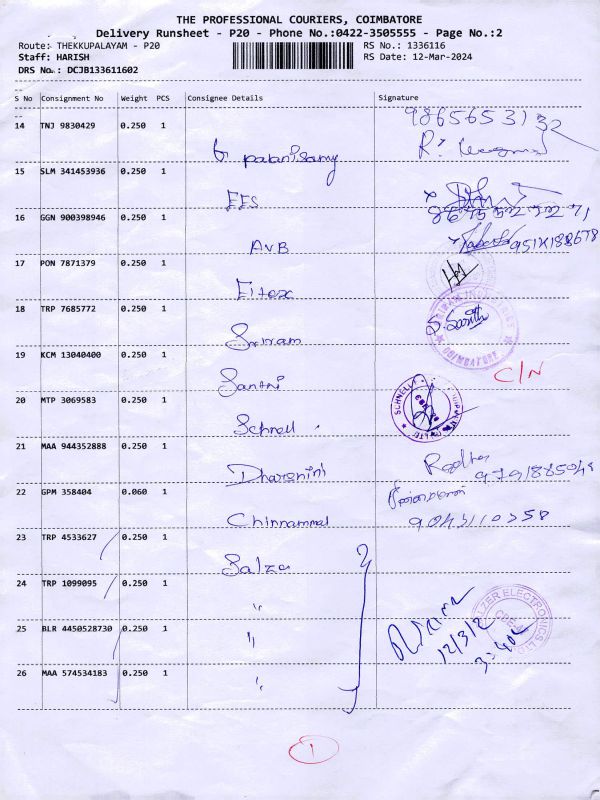 THE PROFESSIONAL COURIERS, COIMBATORE
Delivery Runsheet - P20 - Phone No.:0422-3505555 - Page No.:2
Route: THEKKUPALAYAM - P20 RS No.: 1336116
Staff: HARISH RS Date: 12-Mar-2024
DRS No.: DCJB133611602
S No Consignment No Weight PCS Consignee Details Signature
14 TNJ 9830429 0.250 1 G. palanisamy 9865653132
15 SLM 341453936 0.250 1 EES
16 GGN 900398946 0.250 1 AVB
17 PON 7871379 0.250 1 Eltex
18 TRP 7685772 0.250 1 Sriram S. Sarith
SRIRAM INDUSTRIES
COIMBATORE
19 KCM 13040400 0.250 1 Santni C/N
20 MTP 3069583 0.250 1 Schnell
SCHNELL
21 MAA 944352888 0.250 1 Dharshini Radha
22 GPM 358404 0.060 1 Chinnammal
23 TRP 4533627 0.250 1 Salzer
24 TRP 1099095 0.250 1 "
SALZER ELECTRONICS LTD
25 BLR 4450528730 0.250 1 "
12/3/2
26 MAA 574534183 0.250 1 "
1